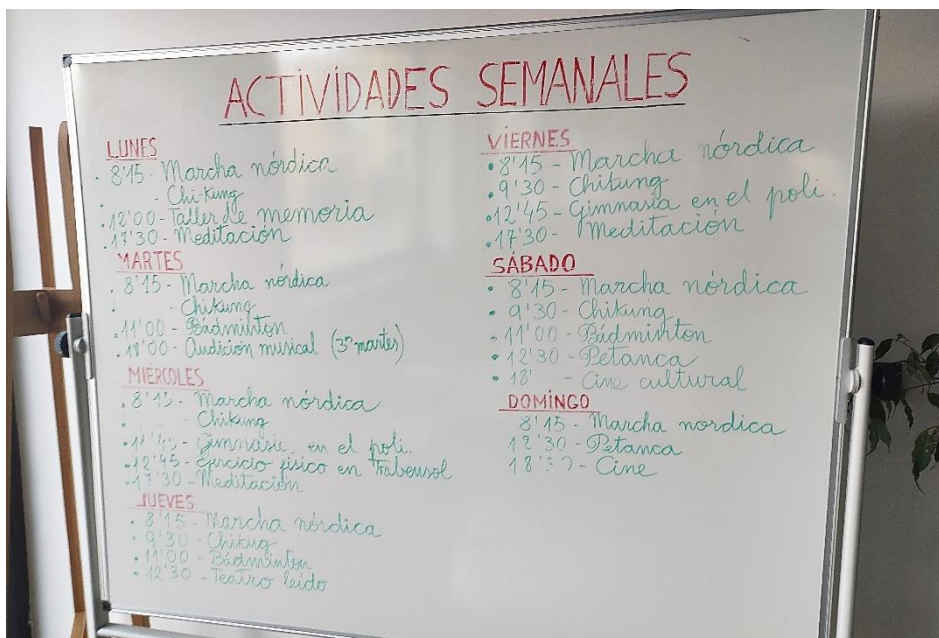 ACTIVIDADES SEMANALES
LUNES
• 8'15 - Marcha nórdica
• - Chi-Kung
• 12'00 - Taller de memoria
• 17'30 - Meditación
MARTES
• 8'15 - Marcha nórdica
• - Chikung
• 11'00 - Bádminton
• 18'00 - Audición musical (3er martes)
MIÉRCOLES
• 8'15 - Marcha nórdica
- Chikung
• - Gimnasia en el poli.
• 12'45 - Ejercicio físico en Trabensol
• 17'30 - Meditación
JUEVES
• 8'15 - Marcha nórdica
• 9'30 - Chikug
• 11'00 - Bádminton
• 12'30 - Teatro leído
VIERNES
• 8'15 - Marcha nórdica
• 9'30 - Chikung
• 12'45 - Gimnasia en el poli.
• 17'30 - Meditación
SÁBADO
• 8'15 - Marcha nórdica
• 9'30 - Chikung
• 11'00 - Bádminton
• 12'30 - Petanca
• 18' - Cine cultural
DOMINGO
8'15 - Marcha nordica
12'30 - Petanca
- Cine